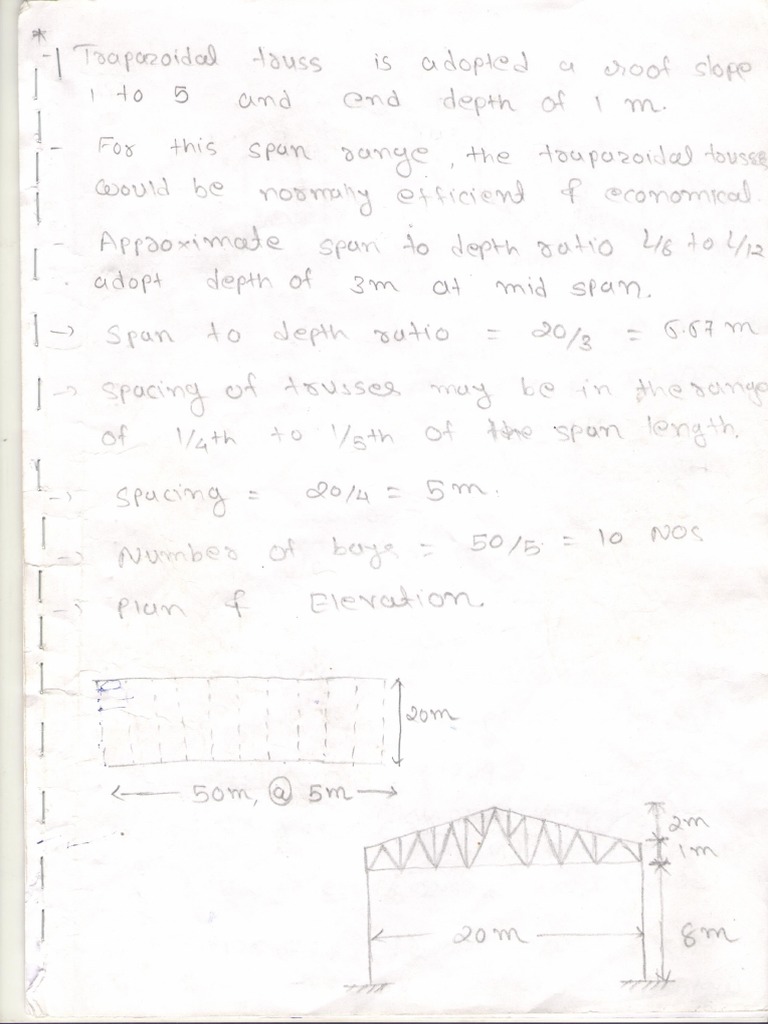 *
Trapazoidal truss is adopted a roof slope
1 to 5 and end depth of 1 m.
- For this span range, the trapazoidal trusses
would be normally efficient & economical.
- Approximate span to depth ratio L/8 to L/12
adopt depth of 3m at mid span.
→ Span to depth ratio = 20/3 = 6.67 m
→ Spacing of trusses may be in the range
of 1/4th to 1/5th of the span length.
→ Spacing = 20/4 = 5 m.
→ Number of bays = 50/5 = 10 NOS
→ Plan & Elevation.
20m
50m, @ 5m
2m
1m
20m
8m